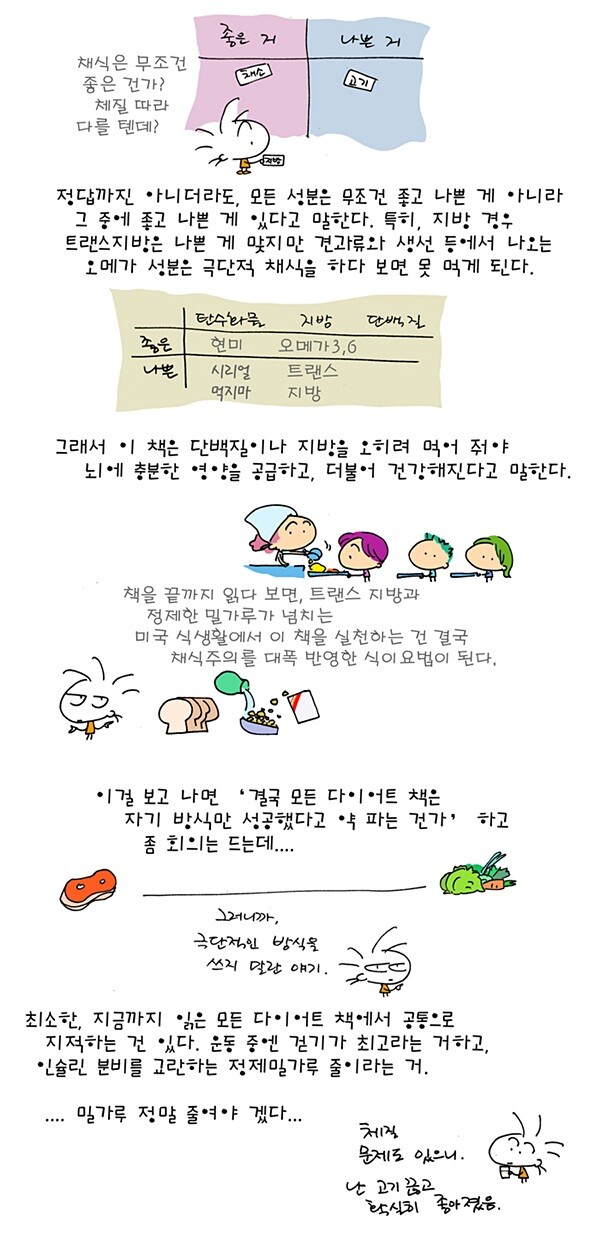 좋은 거 나쁜 거
채소 고기
채식은 무조건
좋은 건가?
체질 따라
다를 텐데?
지방
정답까진 아니더라도, 모든 성분은 무조건 좋고 나쁜 게 아니라
그 중에 좋고 나쁜 게 있다고 말한다. 특히, 지방 경우
트랜스지방은 나쁜 게 맞지만 견과류와 생선 등에서 나오는
오메가 성분은 극단적 채식을 하다 보면 못 먹게 된다.
탄수화물 지방 단백질
좋은 현미 오메가3,6
나쁜 시리얼 트랜스
먹지마 지방
그래서 이 책은 단백질이나 지방을 오히려 먹어 줘야
뇌에 충분한 영양을 공급하고, 더불어 건강해진다고 말한다.
책을 끝까지 읽다 보면, 트랜스 지방과
정제한 밀가루가 넘치는
미국 식생활에서 이 책을 실천하는 건 결국
채식주의를 대폭 반영한 식이요법이 된다.
이걸 보고 나면 ‘결국 모든 다이어트 책은
자기 방식만 성공했다고 약 파는 건가’ 하고
좀 회의는 드는데....
그러니까,
극단적인 방식을
쓰지 말란 얘기.
최소한, 지금까지 읽은 모든 다이어트 책에서 공통으로
지적하는 건 있다. 운동 중엔 걷기가 최고라는 거하고,
인슐린 분비를 교란하는 정제밀가루 줄이라는 거.
.... 밀가루 정말 줄여야 겠다...
체질
문제도 있으니.
난 고기 끊고
확실히 좋아졌음.